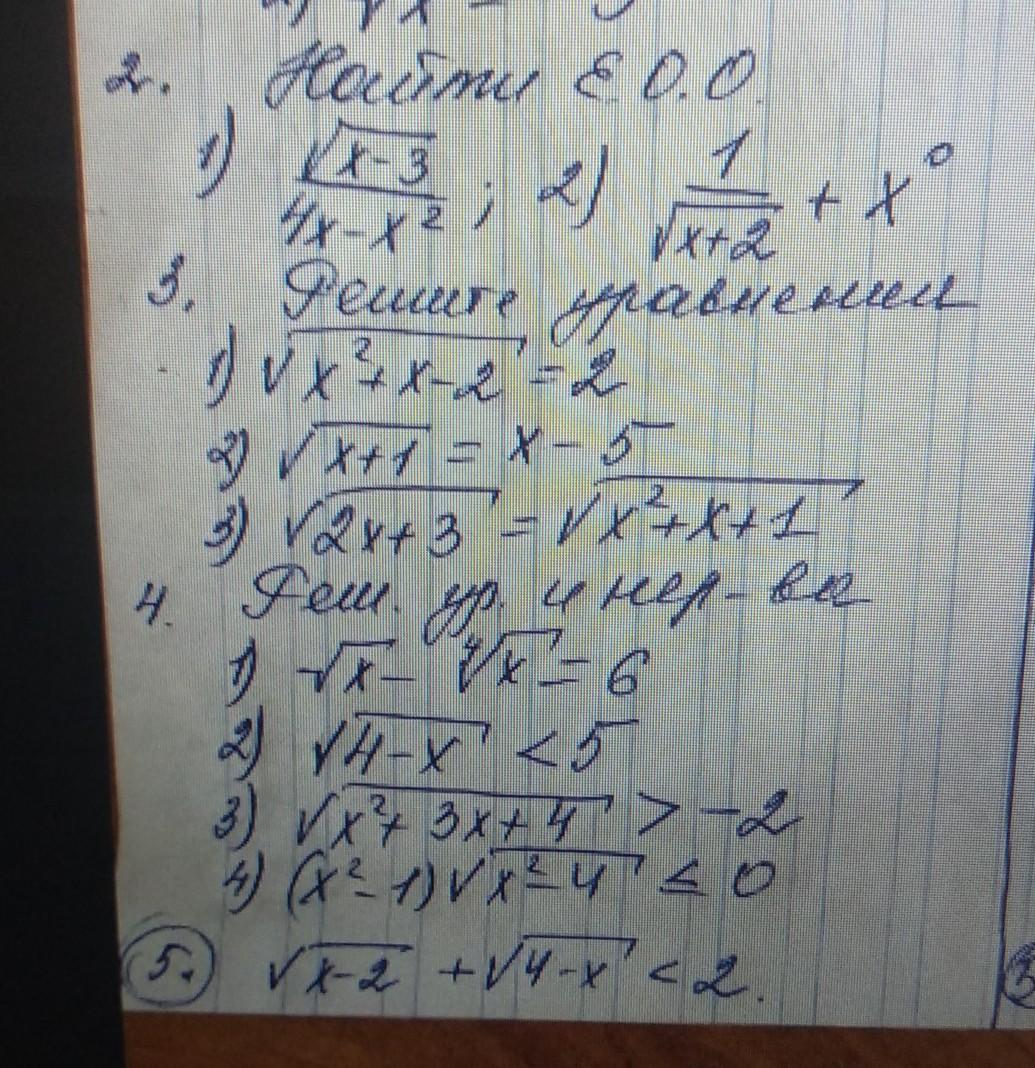 2. Найти Е О.О.
1) √(x-3) / (4x-x²) ; 2) 1 / √(x+2) + x⁰
3. Решите уравнении
1) √(x²+x-2) = 2
2) √(x+1) = x-5
3) √(2x+3) = √(x²+x+1)
4. Реш. ур. и нер-ва
1) √x - ∜x = 6
2) √(4-x) < 5
3) √(x²+3x+4) > -2
4) (x²-1)√(x²-4) ≤ 0
5. √(x-2) + √(4-x) < 2.